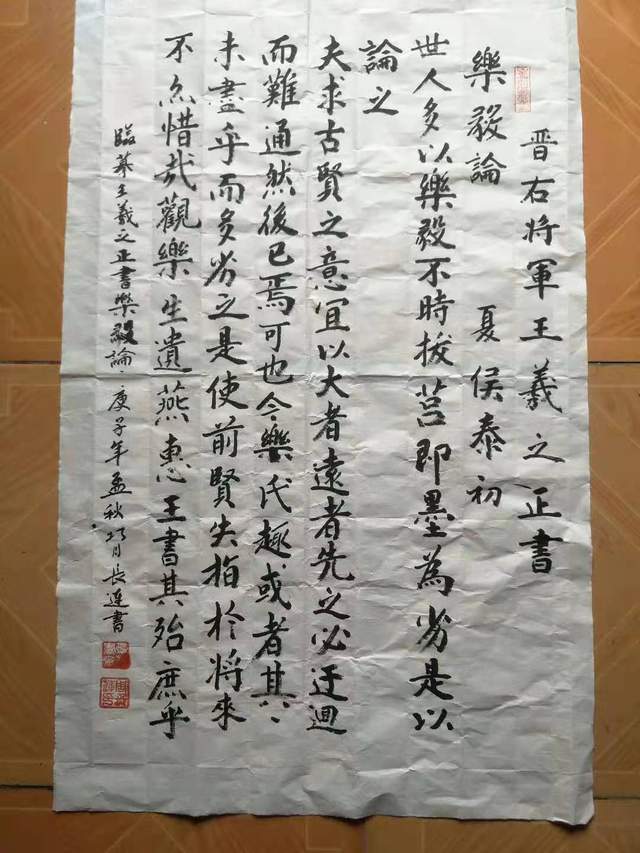 晋右将軍王羲之正書
樂毅論 夏侯泰初
世人多以樂毅不時拔莒即墨為劣是以
論之
夫求古賢之意宜以大者遠者先之必迂迴
而難通然後已焉可也今樂氏趣或者其
未盡乎而多劣之是使前賢失指於将來
不亦惜哉觀樂生遺燕惠王書其殆庶乎
臨摹王羲之正書樂毅論庚子年孟秋巧月長连書